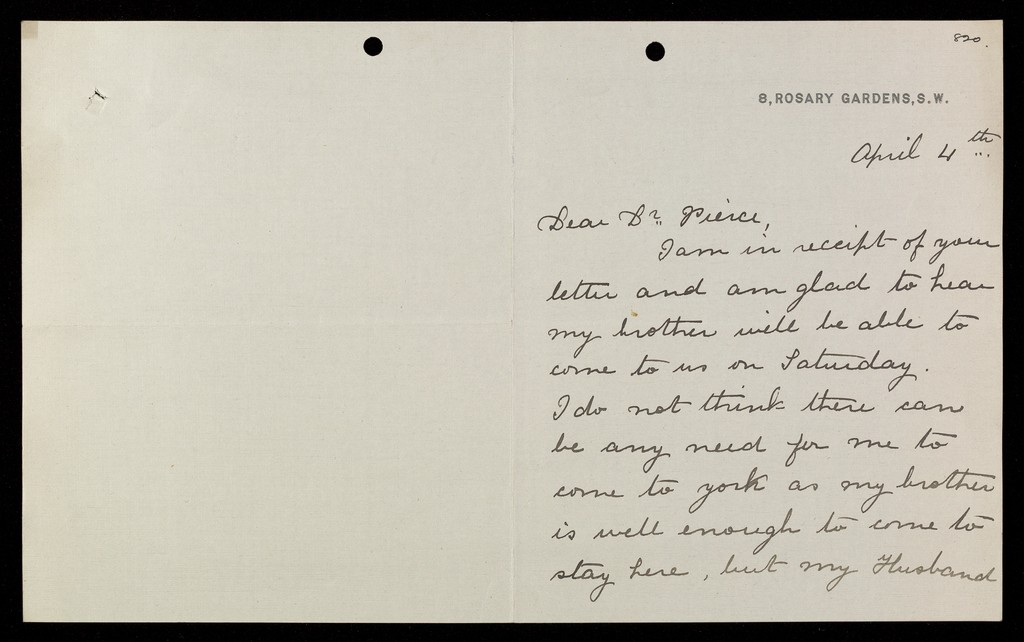 820.
8, ROSARY GARDENS, S.W.
April 4th
Dear Dr. Pierce,
I am in receipt of your
letter and am glad to hear
my brother will be able to
come to us on Saturday.
I do not think there can
be any need for me to
come to york as my brother
is well enough to come to
stay here, but my Husband